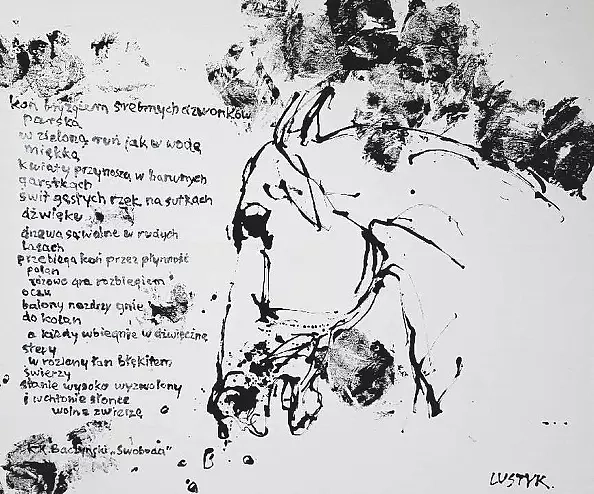 koń brzęczeniem srebrnych dzwonków
parska
w zieloną ruń jak w wodę
miękką
kwiaty przynoszą w barwnych
garstkach
świt gęstych rzęk na sutkach
dźwięku
drzewa są wolne w rudych
lasach
przebiega koń przez płynność
polan
różowo gra rozbiegiem
oczu
balony nozdrzy gnie
do kolan
a kiedy wbiegnie w dźwięczne
stepy
w rozlany łan błękitem
świerzy
stanie wysoko wyzwolony
i wchłonie słońce
wolne zwierzę
K.K. Baczyński „Swoboda"
LUSTYK.